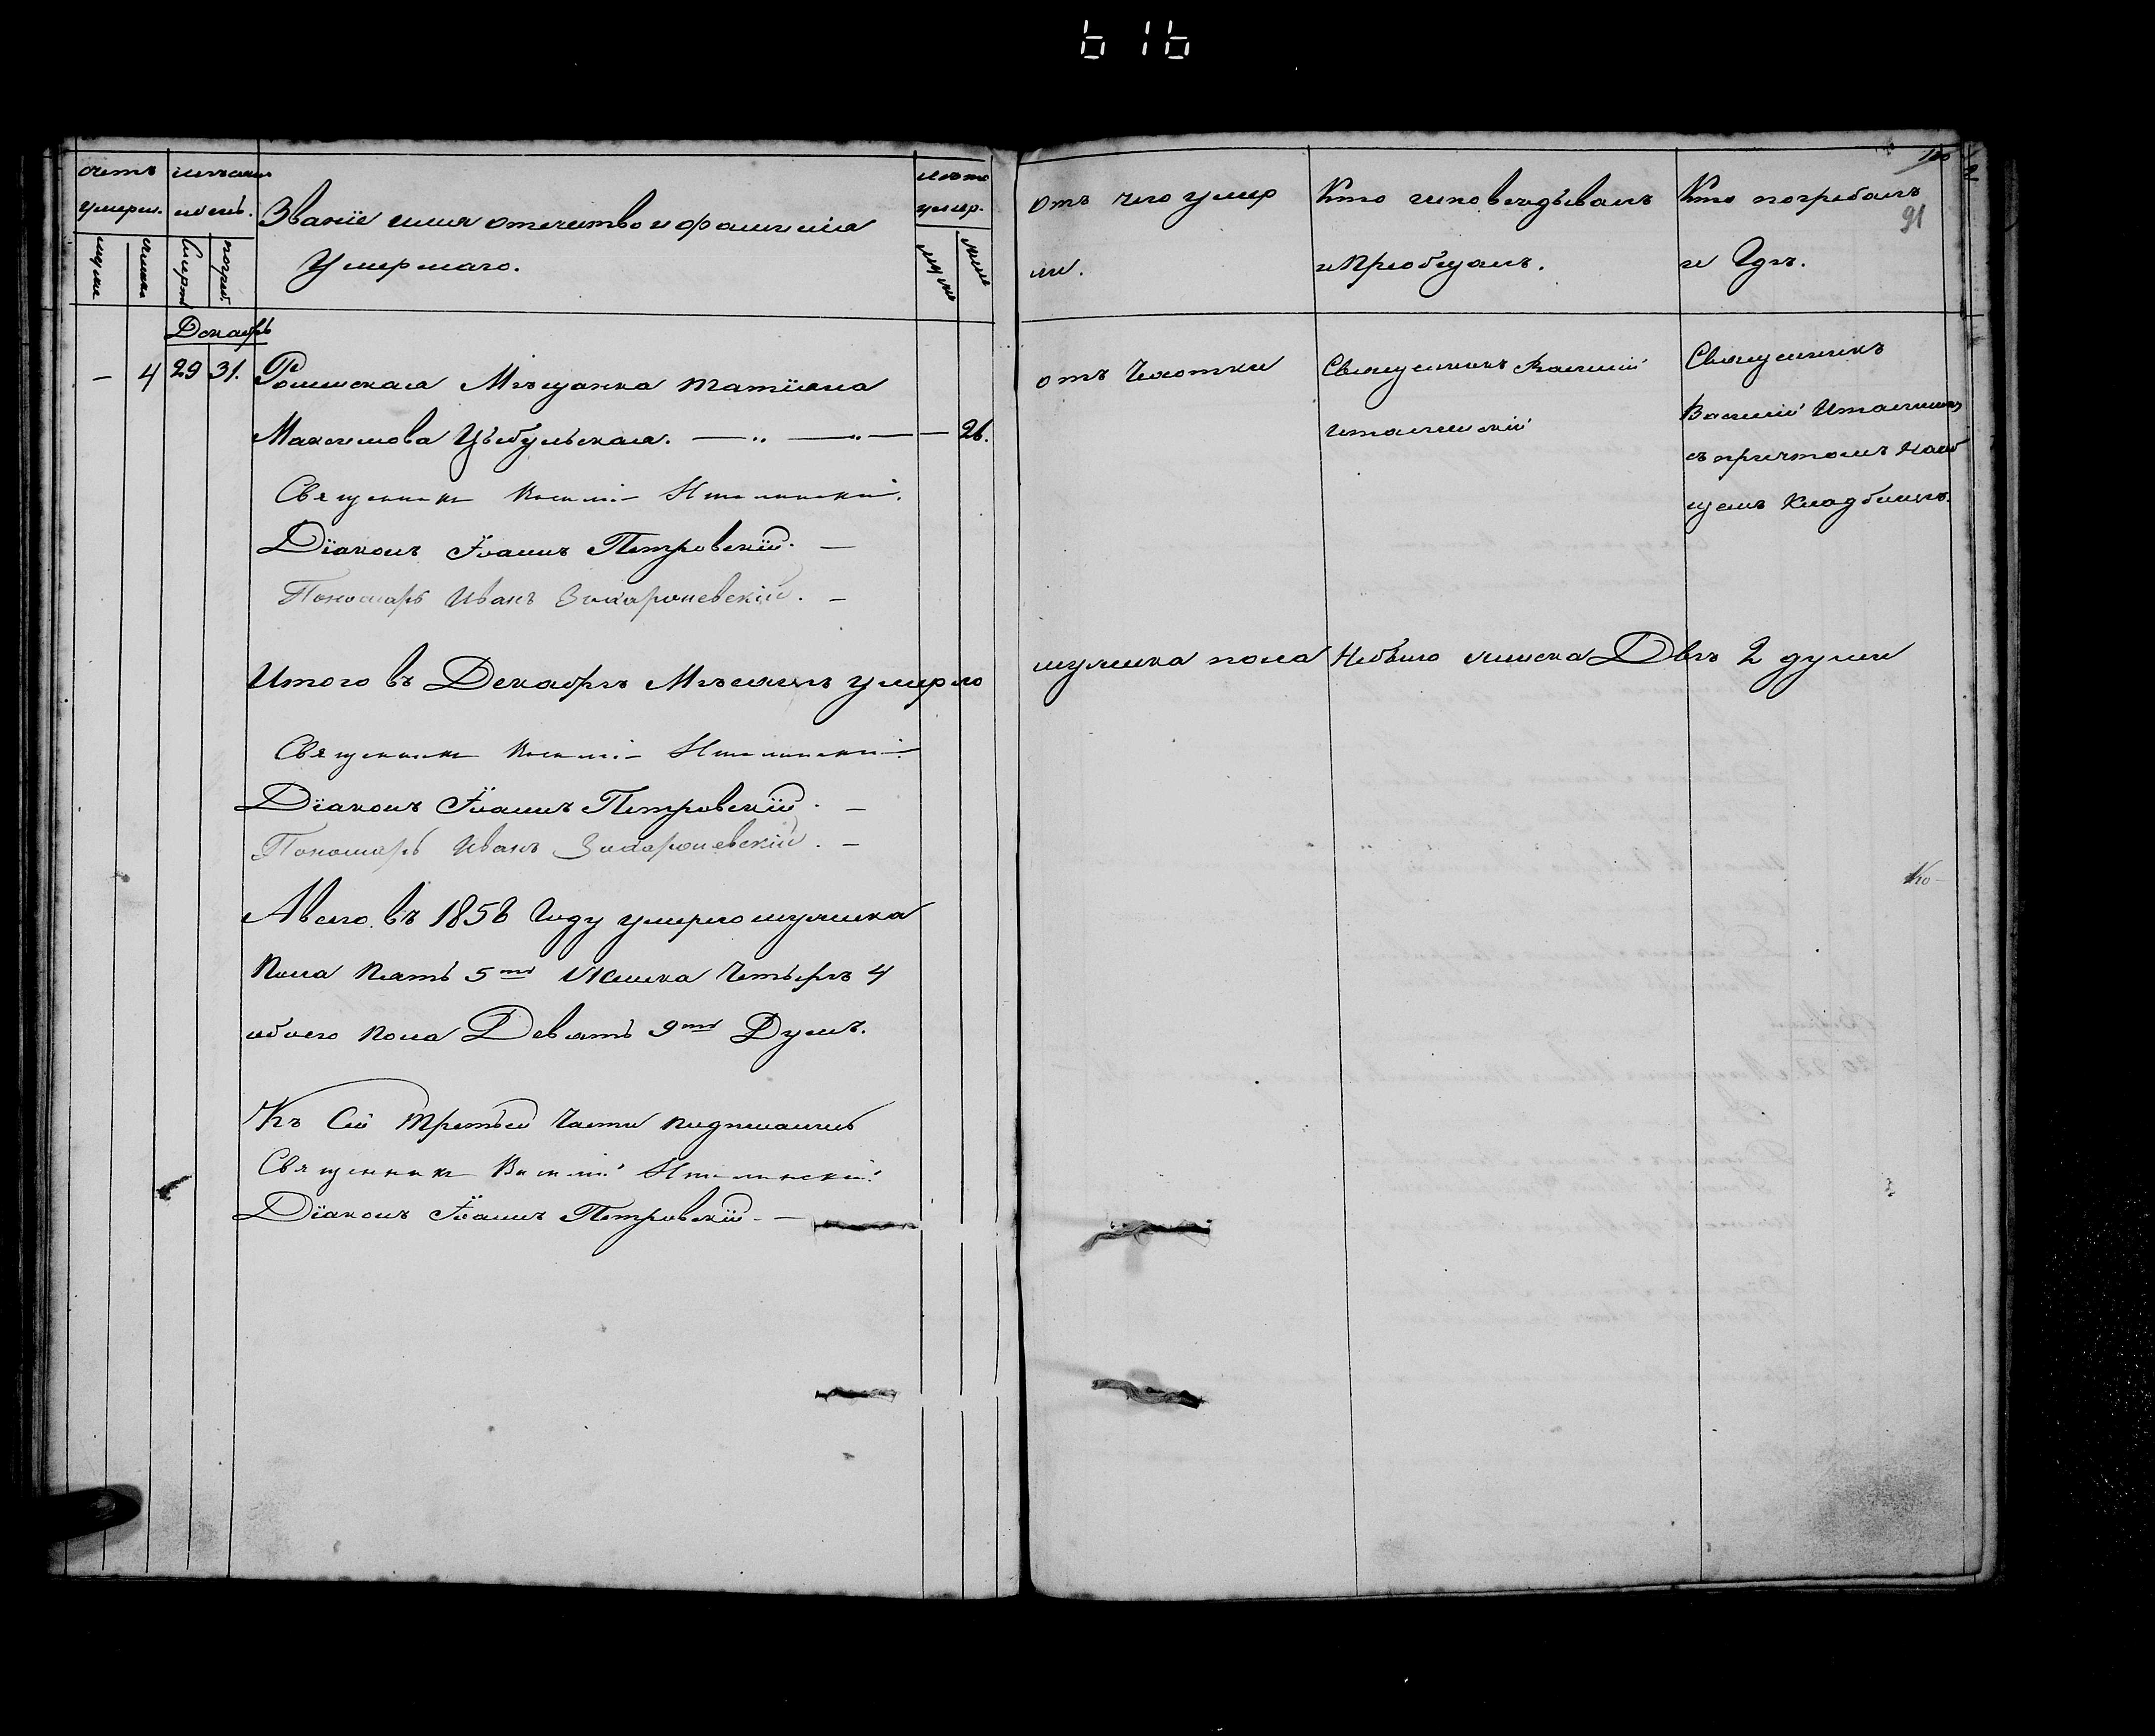 616
счетъ
умерш.
мѣсяцъ
и день.
Званіе имя отечество и фамилія
Умершаго.
лѣто
умер.
мужес
женск
смерт
погреб.
муж
женс
отъ чего умер
ли.
Кто исповѣдывалъ
и Пріобщалъ.
Кто погребалъ
и Гдѣ.
100
91
Декабрь
— 4 29 31. Роменская Мѣщанка Татіяна
Максимова Цыбульская. — 26.
отъ Чахотки
Священникъ Василій
Италинскій
Священникъ
Василій Италинскій
съ причтомъ наоб
щемъ Кладбищѣ.
Священникъ Василій Италинскій.
Діаконъ Іоаннъ Петровскій. —
Пономарь Иванъ Захароневскій. —
Итого въ Декабрѣ Мѣсяцѣ умерло мужеска пола Небыло женска Двѣ 2 души
Священникъ Василій Италинскій
Діаконъ Іоаннъ Петровскій. —
Пономарь Иванъ Захароневскій. —
А всего въ 1858 Году умерло мужеска
Пола Пять 5ть Женска Четыре 4
обоего пола Девять 9ть Душъ.
Къ Сей Третьей Части подписались
Священникъ Василій Италинскій
Діаконъ Іоаннъ Петровскій. —